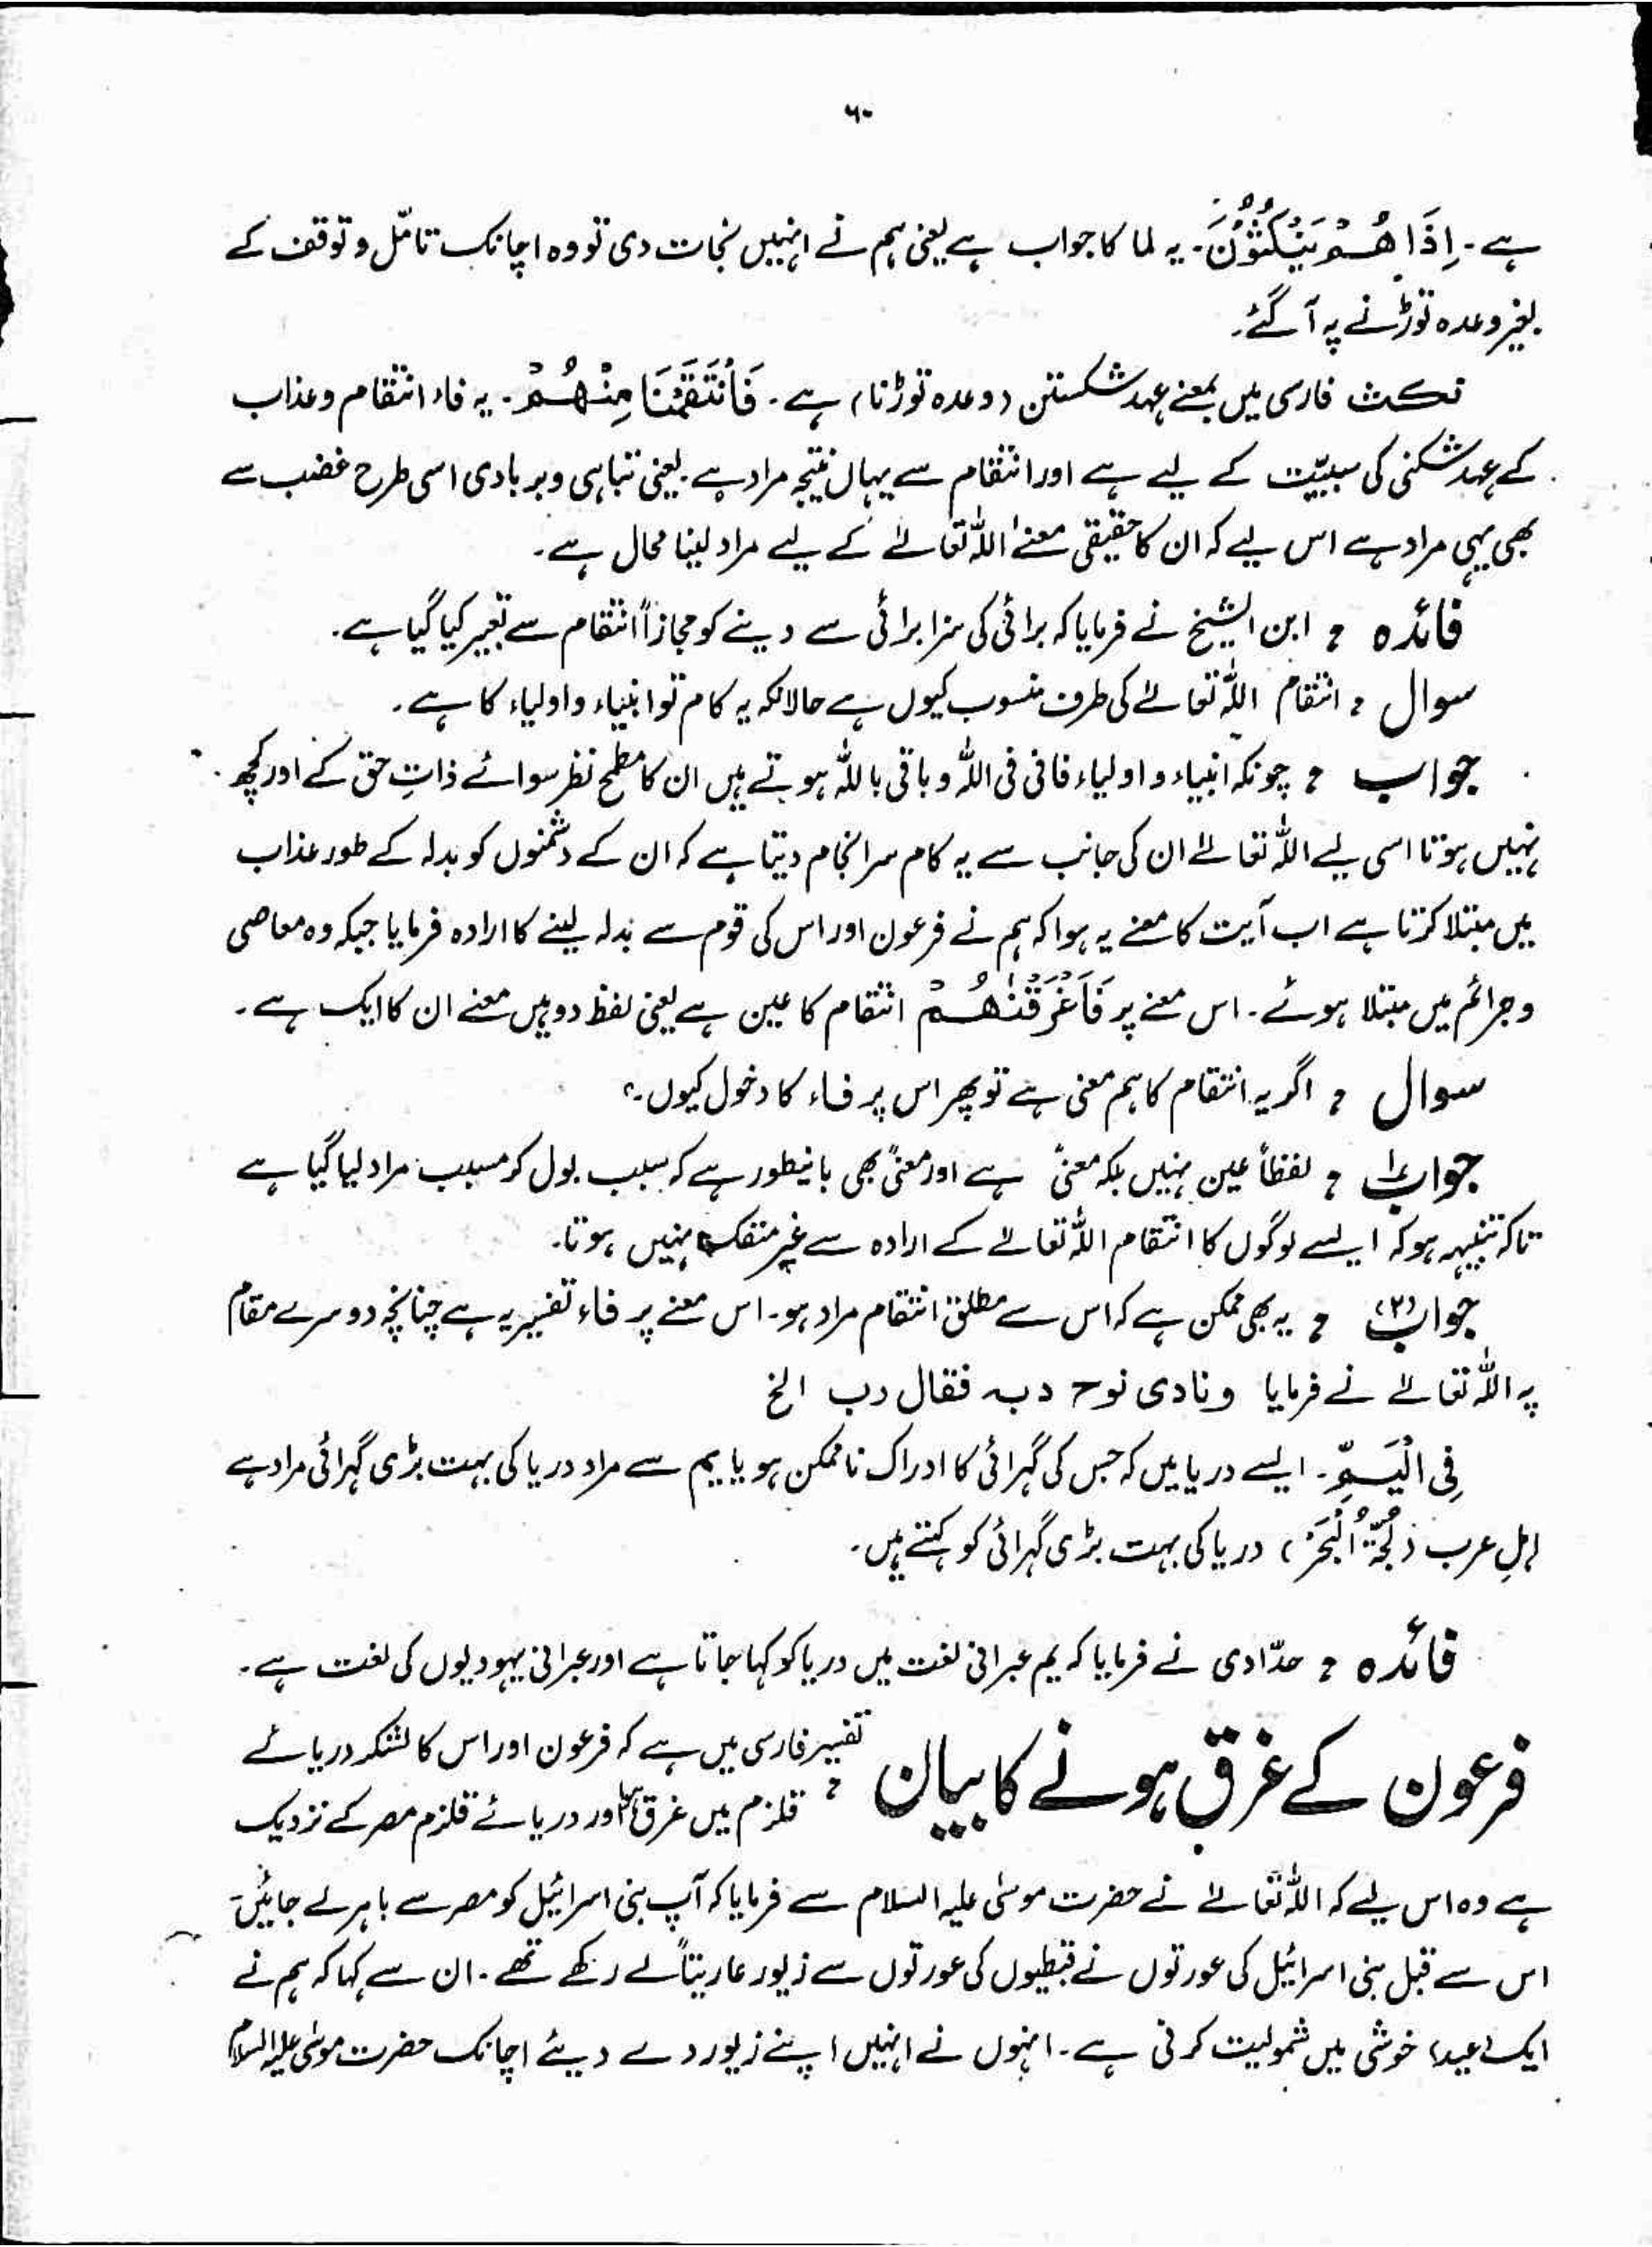 ۶۰
ہے۔ اِذَا هُمْ يَنْكُثُوْنَ۔ یہ لما کا جواب ہے یعنی ہم نے انہیں نجات دی تو وہ اچانک تامّل و توقف کے
بغیر وعدہ توڑنے پہ آگئے۔
نکث فارسی میں بمعنے عہد شکستن (وعدہ توڑنا) ہے۔ فَانْتَقَمْنَا مِنْهُمْ۔ یہ فاء انتقام و عذاب
کے عہد شکنی کی سببیّت کے لیے ہے اور انتقام سے یہاں نتیجہ مراد ہے یعنی تباہی و بربادی اسی طرح غضب سے
بھی یہی مراد ہے اس لیے کہ ان کا حقیقی معنےٰ اللہ تعالےٰ کے لیے مراد لینا محال ہے۔
فائدہ : ابن الشیخ نے فرمایا کہ برائی کی سزا برائی سے دینے کو مجازاً انتقام سے تعبیر کیا گیا ہے۔
سوال : انتقام اللہ تعالےٰ کی طرف منسوب کیوں ہے حالانکہ یہ کام تو انبیاء و اولیاء کا ہے۔
جواب : چونکہ انبیاء و اولیاء فانی فی اللہ و باقی باللہ ہوتے ہیں ان کا مطمح نظر سوائے ذاتِ حق کے اور کچھ
نہیں ہوتا اسی لیے اللہ تعالےٰ ان کی جانب سے یہ کام سرانجام دیتا ہے کہ ان کے دشمنوں کو بدلہ کے طور عذاب
میں مبتلا کرتا ہے اب آیت کا معنے یہ ہوا کہ ہم نے فرعون اور اس کی قوم سے بدلہ لینے کا ارادہ فرمایا جبکہ وہ معاصی
و جرائم میں مبتلا ہوئے۔ اس معنے پر فَاَغْرَقْنٰهُمْ انتقام کا عین ہے یعنی لفظ دو ہیں معنے ان کا ایک ہے۔
سوال : اگر یہ انتقام کا ہم معنی ہے تو پھر اس پر فاء کا دخول کیوں۔؟
جواب ۱ : لفظاً عین نہیں بلکہ معنیً ہے اور معنیً بھی بانیطور ہے کہ سبب بول کر مسبب مراد لیا گیا ہے
تاکہ تنبیہہ ہو کہ ایسے لوگوں کا انتقام اللہ تعالےٰ کے ارادہ سے غیر منفک نہیں ہوتا۔
جواب (۲) : یہ بھی ممکن ہے کہ اس سے مطلق انتقام مراد ہو۔ اس معنے پر فاء تفسیریہ ہے چنانچہ دوسرے مقام
پہ اللہ تعالےٰ نے فرمایا ونادی نوح ربہ فقال رب الخ
فِی الْیَمِّ۔ ایسے دریا میں کہ جس کی گہرائی کا ادراک ناممکن ہو یا یم سے مراد دریا کی بہت بڑی گہرائی مراد ہے
اہلِ عرب (لُجَّۃُ الْبَحْرِ) دریا کی بہت بڑی گہرائی کو کہتے ہیں۔
فائدہ : حدّادی نے فرمایا کہ یم عبرانی لغت میں دریا کو کہا جاتا ہے اور عبرانی یہودیوں کی لغت ہے۔
فرعون کے غرق ہونے کا بیان :
تفسیر فارسی میں ہے کہ فرعون اور اس کا لشکر دریائے
قلزم میں غرق ہوا اور دریائے قلزم مصر کے نزدیک
ہے وہ اس لیے کہ اللہ تعالےٰ نے حضرت موسیٰ علیہ السلام سے فرمایا کہ آپ بنی اسرائیل کو مصر سے باہر لے جائیں۔
اس سے قبل بنی اسرائیل کی عورتوں نے قبطیوں کی عورتوں سے زیور عاریتاً لے رکھے تھے۔ ان سے کہا کہ ہم نے
ایک (عید) خوشی میں شمولیت کرنی ہے۔ انہوں نے انہیں اپنے زیور دے دیئے اچانک حضرت موسیٰ علیہ السلام